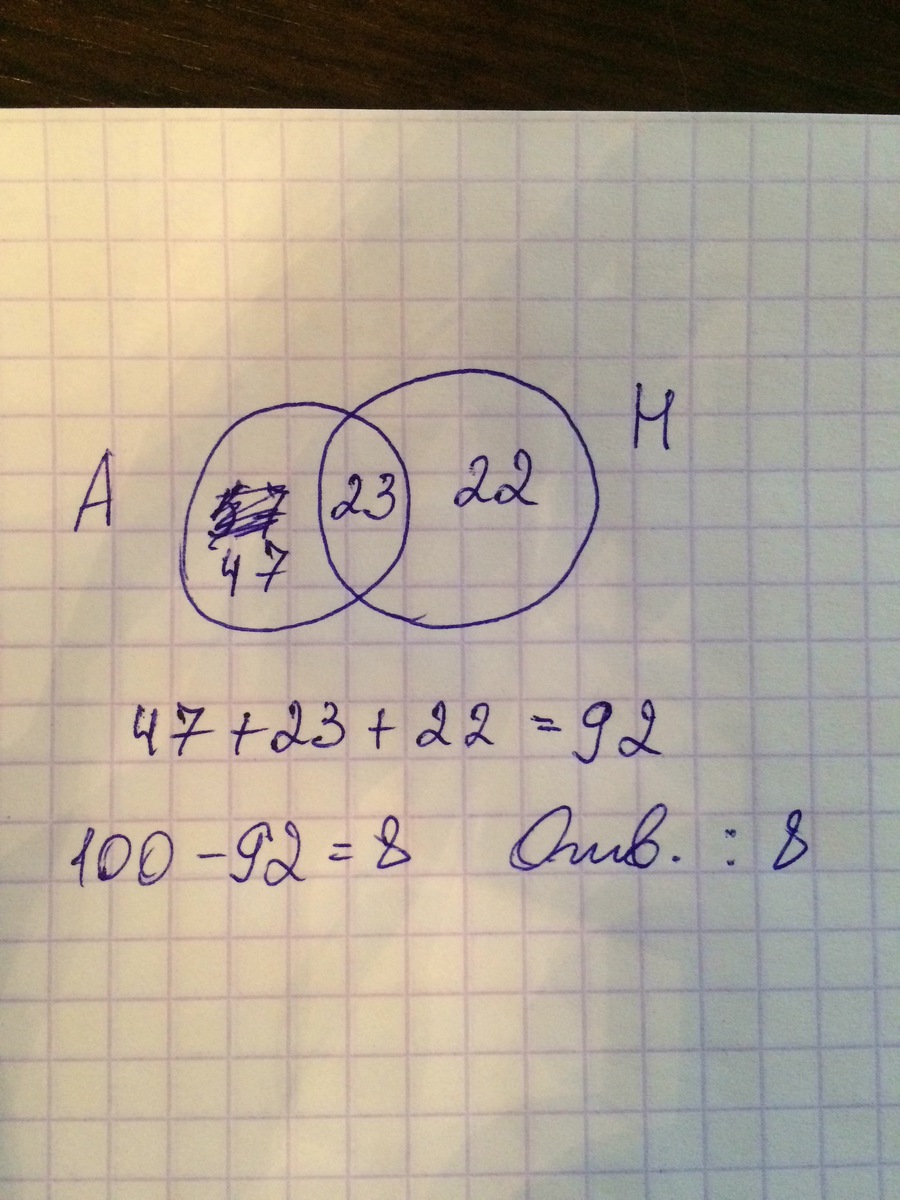 А 23 22 Н
47
47 + 23 + 22 = 92
100 - 92 = 8 Отв. : 8